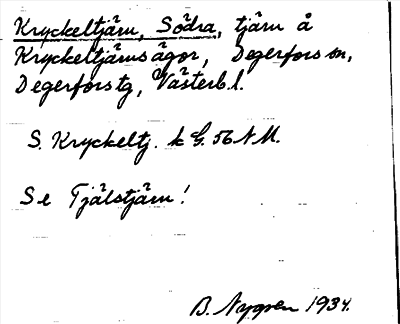 Kryckeltjärn, Södra, tjärn å
Kryckeltjärnsägor, Degerfors sn,
Degerfors tg, Västerb. l.
S. Kryckeltj. k G. 56 NM.
Se Tjälstjärn!
B. Nygren 1934.